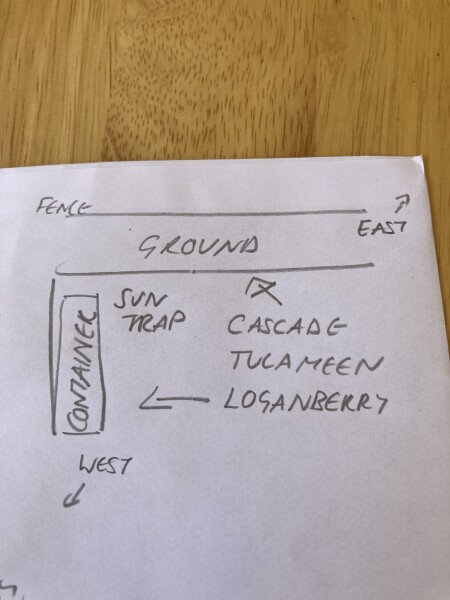 FENCE
EAST
GROUND
SUN
TRAP
CONTAINER
CASCADE
TULAMEEN
LOGANBERRY
WEST